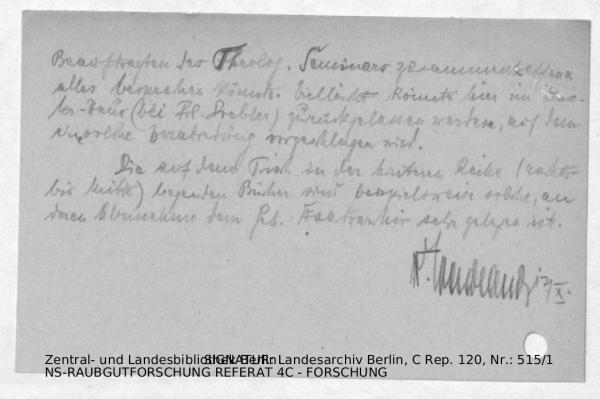 Beauftragten des Theolog. Seminars zusammen
alles besprechen könnte. Vielleicht könnte hier im
Haus (bei Frl. ) zurückgelassen werden, auf dem
eine solche Verabredung vorgeschlagen wird.
Die auf dem Tisch in der hinteren Reihe (rechts
bis Mitte) liegenden Bücher sind beispielsweise solche, an
deren Übernahme dem Geh. sehr gelegen ist.
12/X.
Zentral- und Landesbibliothek Berlin
SIGNATUR: Landesarchiv Berlin, C Rep. 120, Nr.: 515/1
NS-RAUBGUTFORSCHUNG REFERAT 4C - FORSCHUNG